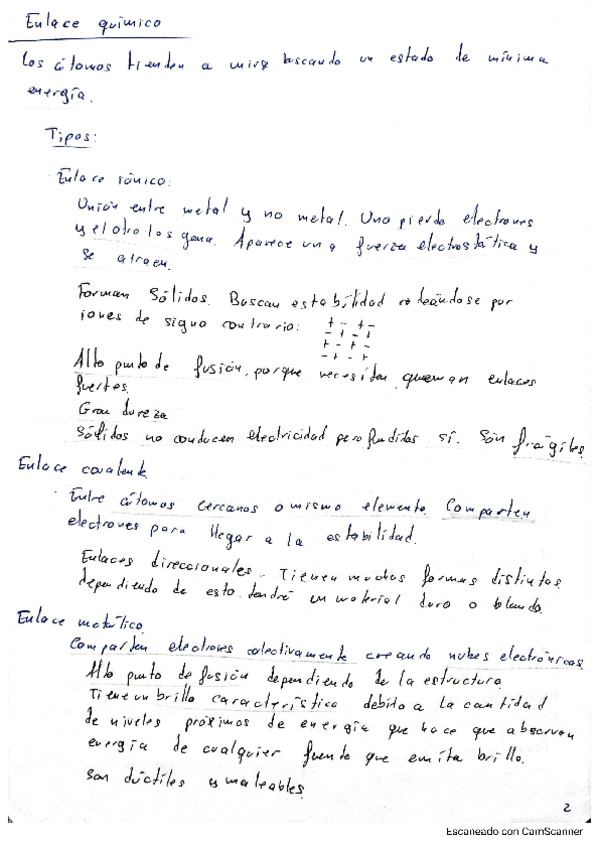 Enlace químico
Los átomos tienden a unirse buscando un estado de mínima
energía.
Tipos:
· Enlace iónico:
Unión entre metal y no metal. Uno pierde electrones
y el otro los gana. Aparece una fuerza electrostática y
se atraen.
Forman sólidos. Buscan estabilidad rodeándose por
iones de signo contrario: + - + -
- + - +
+ - + -
- + - +
Alto punto de fusión, porque necesitan quemar enlaces
fuertes.
Gran dureza
Sólidos no conducen electricidad pero fundidos sí. Son frágiles
Enlace covalente
· Entre átomos cercanos o mismo elemento. Comparten
electrones para llegar a la estabilidad.
Enlaces direccionales - Tienen muchas formas distintas
dependiendo de esto tendré un material duro o blando.
Enlace metálico
Comparten electrones colectivamente creando nubes electrónicas
Alto punto de fusión dependiendo de la estructura
Tiene un brillo característico debido a la cantidad
de niveles próximos de energía que hace que absorvan
energía de cualquier fuente que emita brillo.
Son dúctiles y maleables
2
Escaneado con CamScanner